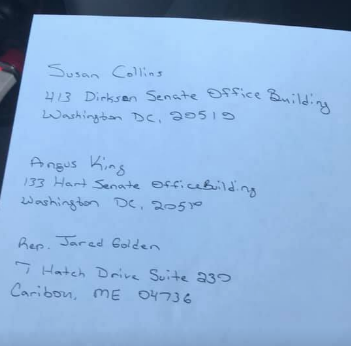 Susan Collins
413 Dirksen Senate Office Building
Washington DC, 20510
Angus King
133 Hart Senate Office Building
Washington DC, 20510
Rep. Jared Golden
7 Hatch Drive Suite 230
Caribou, ME 04736